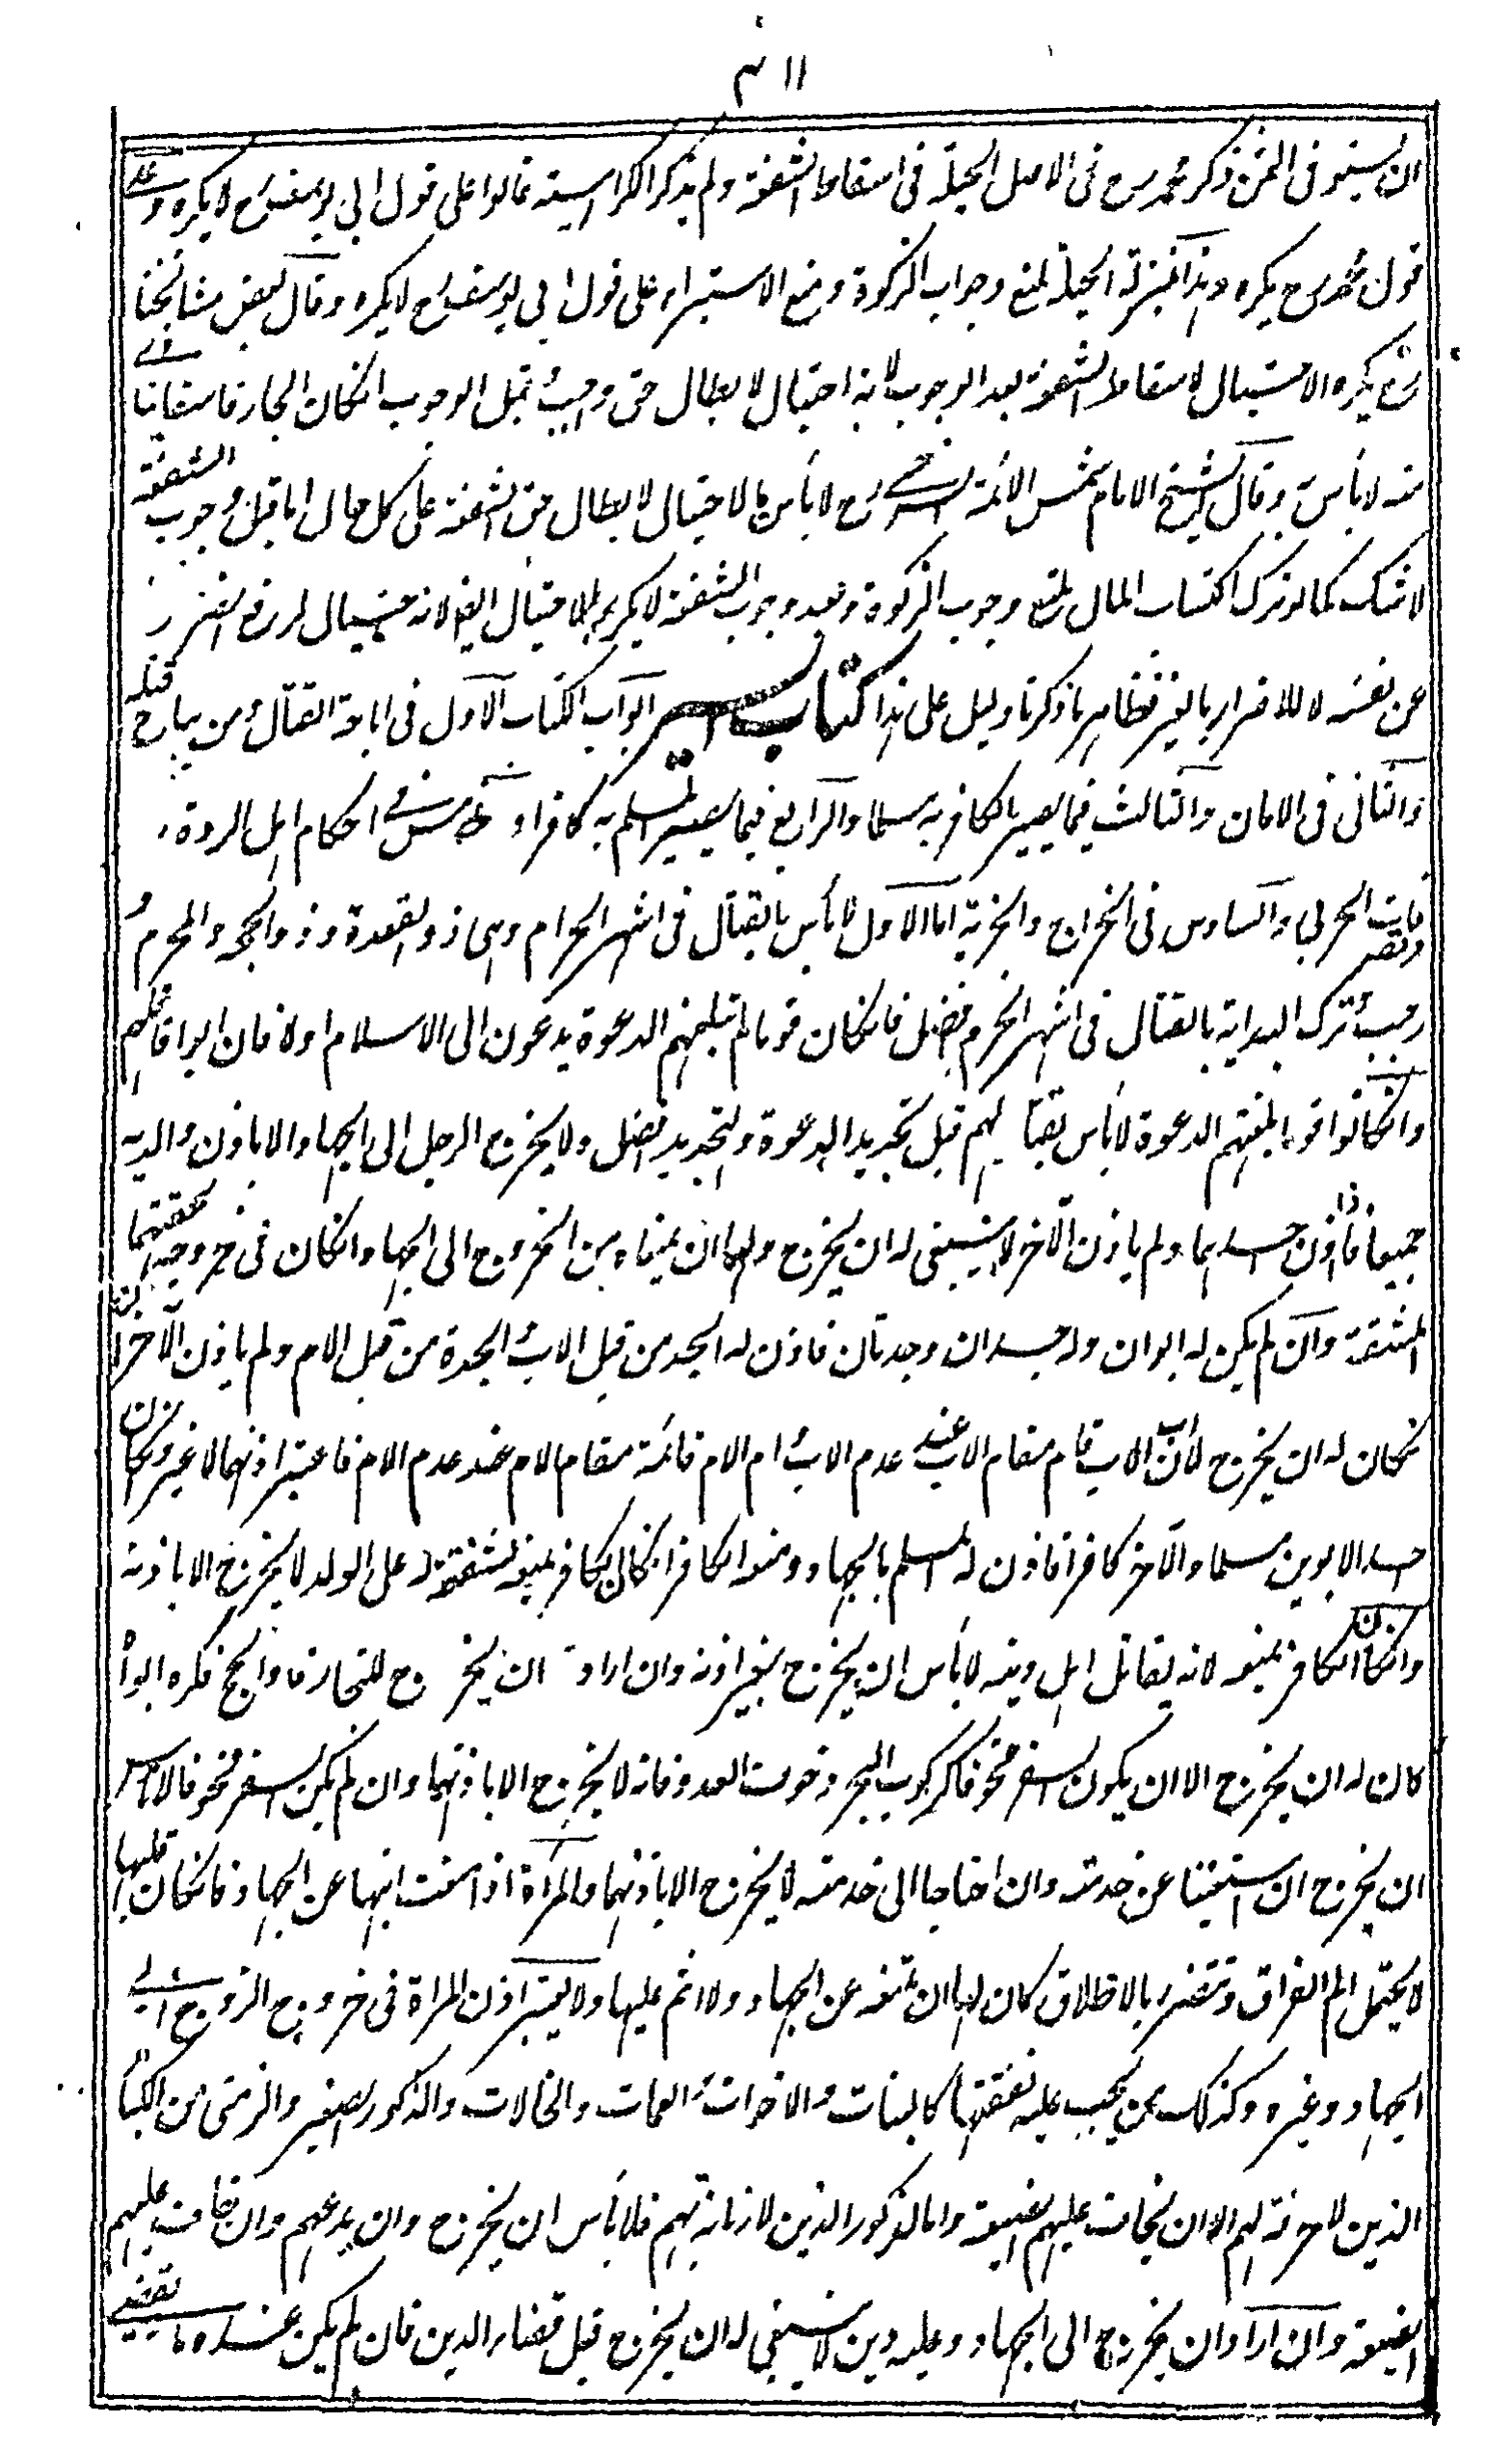 ٣١١
ان يستوفى الثمن ذكر محمد رح فى الاصل الحيلة فى اسقاط الشفعة ولم يذكر الكراهية قالوا على قول ابى يوسف رح لا يكره وعلى
قول محمد رح يكره وهذا بمنزلة الحيلة لمنع وجوب الزكوة ومنع الاستبراء على قول ابى يوسف رح لا يكره وقال بعض مشايخنا
رح يكره الاحتيال لاسقاط الشفعة بعد الوجوب لانه احتيال لابطال حق واجب وقبل الوجوب انكان الجار فاسقا يتأذى
منه لا بأس به وقال الشيخ الامام شمس الائمة السرخسى رح لا بأس بالاحتيال لابطال حق الشفعة على كل حال اما قبل وجوب الشفعة
لا شك كما لو ترك اكتساب المال لمنع وجوب الزكوة وبعد وجوب الشفعة لا يكره الاحتيال ايضا لانه احتيال لدفع الضرر
عن نفسه لا للاضرار بالغير فظاهر ما ذكرنا دليل على هذا كتاب السير ابواب الكتاب الاول فى اباحة القتال ومن يباح قتله
والثانى فى الامان والثالث فيما يصير الكافر به مسلما والرابع فيما يصير المسلم به كافرا والخامس فى احكام اهل الردة
واهل الحرب والسادس فى الخراج والجزية اما الاول لا بأس بالقتال فى اشهر الحرام وهى ذو القعدة وذو الحجة والمحرم و
رجب وترك البداية بالقتال فى اشهر الحرم افضل فانكان قوما لم تبلغهم الدعوة يدعون الى الاسلام اولا فان ابوا قاتلهم
وانكانوا قوما بلغتهم الدعوة لا بأس بقتالهم قبل تجديد الدعوة والتجديد افضل ولا يخرج الرجل الى الجهاد الا باذن والديه
جميعا فاذا اذن احدهما ولم ياذن الآخر لا ينبغى له ان يخرج ولهما ان يمنعاه من الخروج الى الجهاد وانكان فى خروجه لحقتهما
المشقة وان لم يكن له ابوان وله جدان وجدتان فاذن له الجد من قبل الاب والجدة من قبل الام ولم ياذن الآخران
فكان له ان يخرج لان اب الاب قام مقام الاب عند عدم الاب وام الام قائمة مقام الام عند عدم الام فاعتبر اذنهما لا غير وانكان
احد الابوين مسلما والآخر كافرا فاذن له المسلم بالجهاد ومنعه الكافر انكان الكافر يمنعه لشفقته على الولد لا يخرج الا باذنه
وانكان الكافر يمنعه لانه يقاتل اهل دينه لا بأس ان يخرج بغير اذنه وان اراد ان يخرج للتجارة او الحج فكره ابواه
كان له ان يخرج الا ان يكون السفر مخوفا كركوب البحر وخوف العدو فانه لا يخرج الا باذنهما وان لم يكن السفر مخوفا لا بأس
ان يخرج ان استغنيا عن خدمته وان احتاجا الى خدمته لا يخرج الا باذنهما والمرأة اذا منعت ابنها عن الجهاد فانكان قلبها
لا يحتمل الم الفراق وتتضرر بالاطلاق كان لها ان تمنعه عن الجهاد ولا اثم عليها ولا يعتبر اذن المرأة فى خروج الزوج الى
الجهاد وغيره وكذلك من يجب عليه نفقتها كالبنات والاخوات والعمات والخالات والذكور الصغير والزمنى من الكبار
الذين لا حرفة لهم الا ان يخاف عليهم الضيعة واما الذكور الذين لا زمانة بهم فلا بأس ان يخرج وان يدعهم وان خاف عليهم
الضيعة وان اراد ان يخرج الى الجهاد وعليه دين لا ينبغى له ان يخرج قبل قضاء الدين فان لم يكن عنده ما يقضى